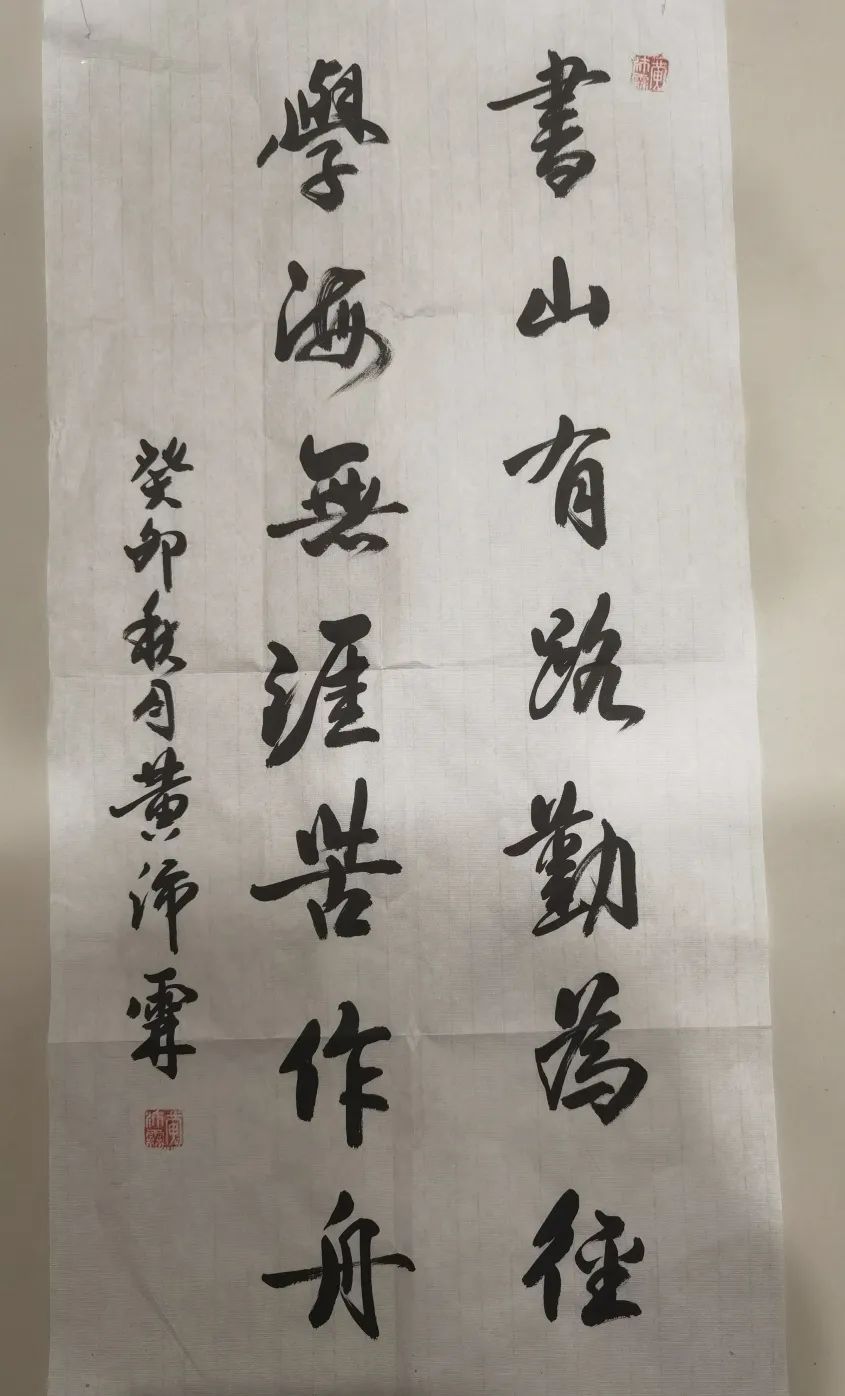 書山有路勤為徑
學海無涯苦作舟
癸卯秋月黄沛霖